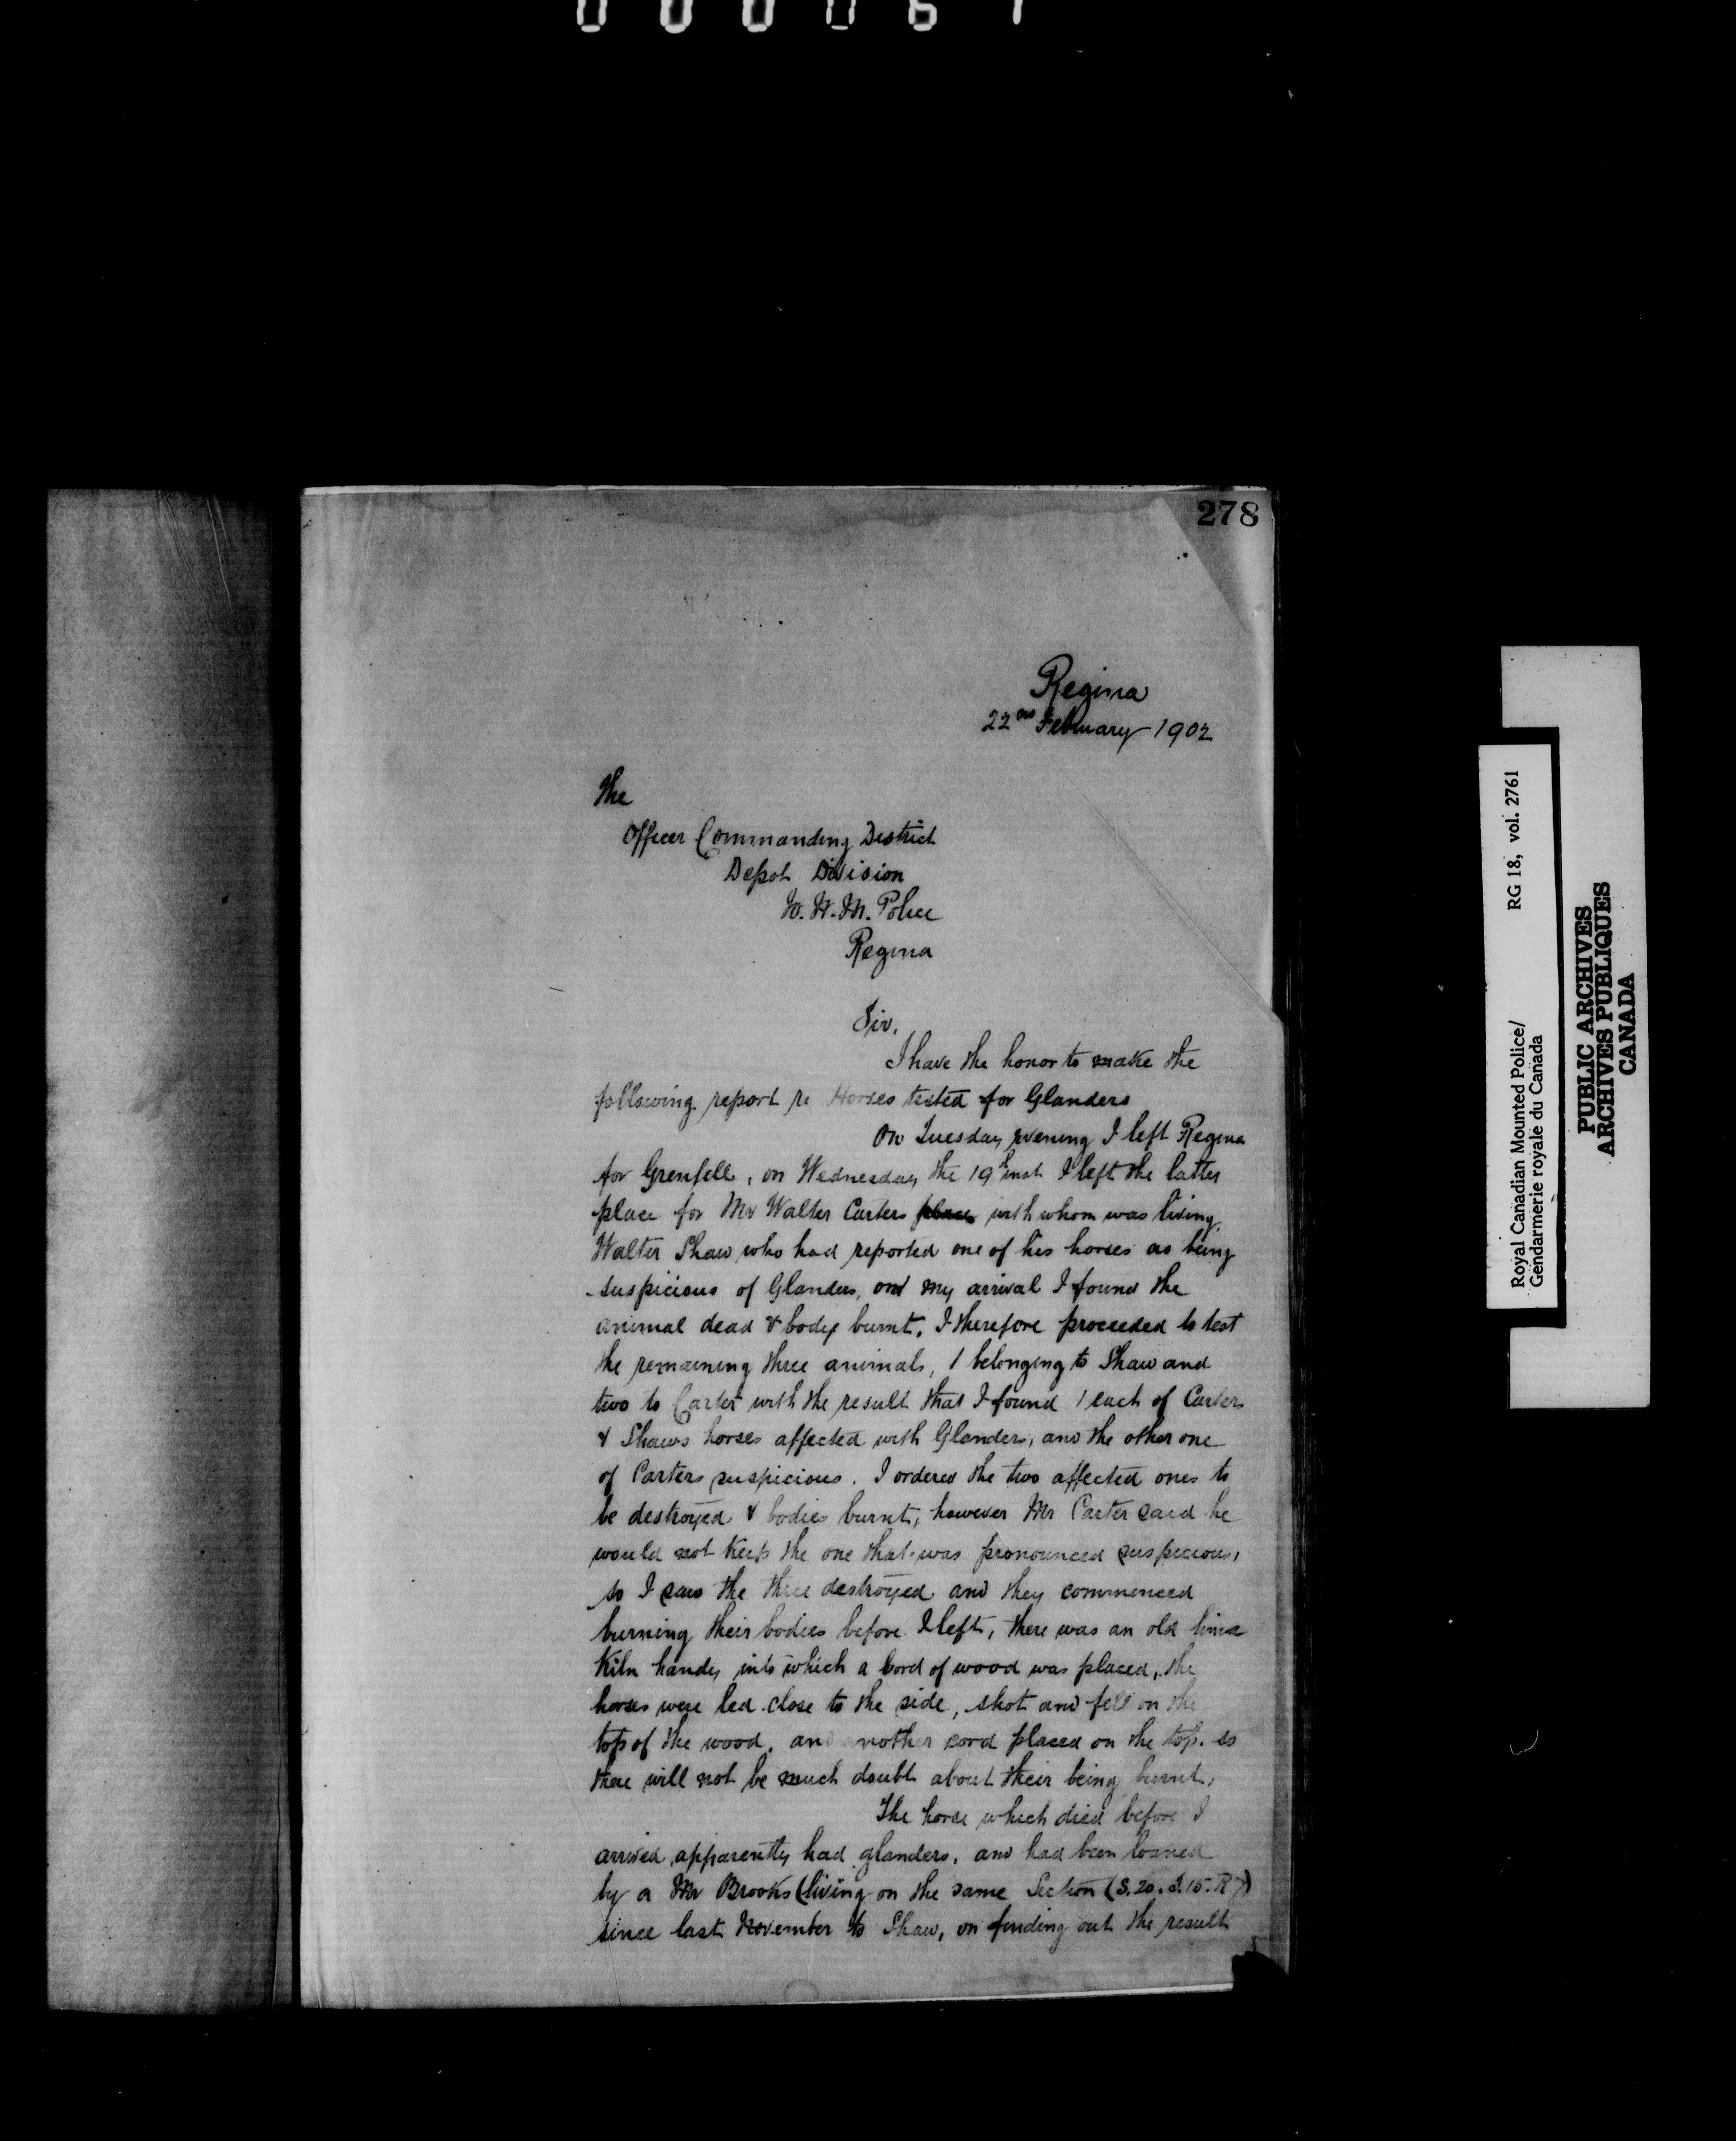 278
Regina
22nd February 1902
The
Officer Commanding District
Depot Division
N. W. M. Police
Regina
Sir,
I have the honor to make the
following report re Horses tested for Glanders
On Tuesday evening I left Regina
for Grenfell, on Wednesday the 19th inst I left the latter
place for Mr Walter Carters place with whom was living
Walter Shaw who had reported one of his horses as being
suspicious of Glanders, on my arrival I found the
animal dead & body burnt. I therefore proceeded to test
the remaining three animals, 1 belonging to Shaw and
two to Carter with the result that I found 1 each of Carters
& Shaws horses affected with Glanders, and the other one
of Carters suspicious. I ordered the two affected ones to
be destroyed & bodies burnt, however Mr Carter said he
would not keep the one that was pronounced suspicious,
so I saw the three destroyed and they commenced
burning their bodies before I left, there was an old lime
Kiln handy into which a cord of wood was placed, the
horses were led close to the side, shot and fell on the
top of the wood. and another cord placed on the top. so
there will not be much doubt about their being burnt.
The horse which died before I
arrived, apparently had glanders, and had been loaned
by a Mr Brooks (living on the same Section (S. 20. T. 15. R 7)
since last November to Shaw, on finding out the result
Royal Canadian Mounted Police/ RG 18, vol. 2761
Gendarmerie royale du Canada
PUBLIC ARCHIVES
ARCHIVES PUBLIQUES
CANADA